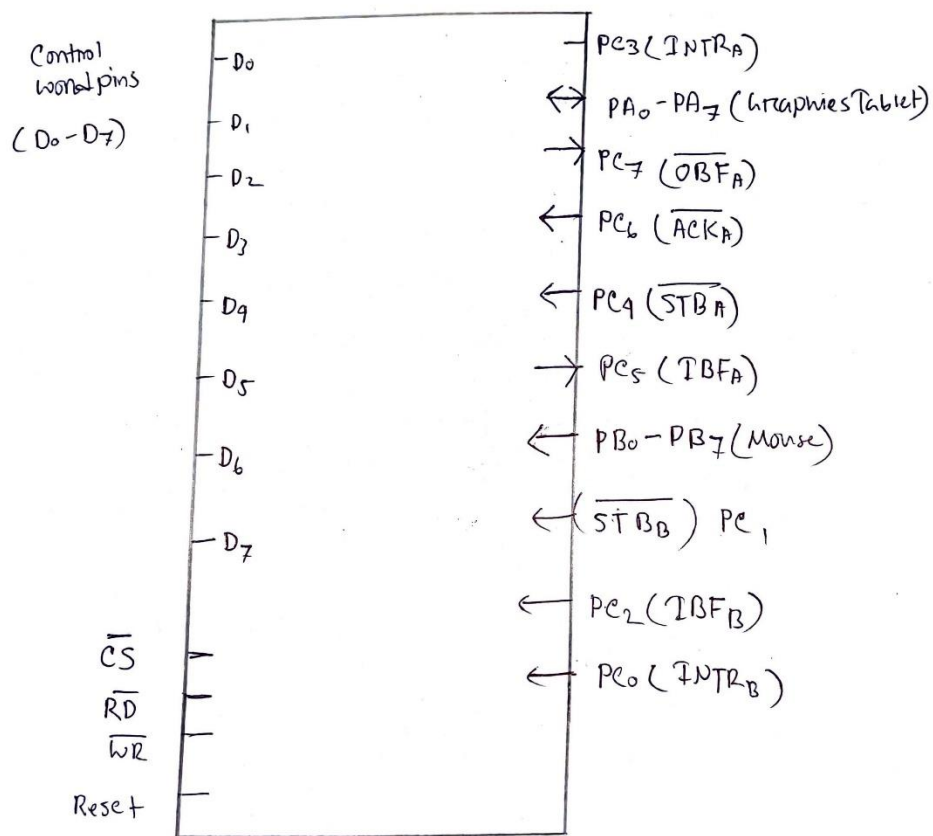 Control
word pins
(D0-D7)
D0
D1
D2
D3
D4
D5
D6
D7
C̅S̅
R̅D̅
W̅R̅
Reset
PC3 (INTRA)
PA0-PA7 (Graphics Tablet)
PC7 (O̅B̅F̅A̅)
PC6 (A̅C̅K̅A̅)
PC4 (S̅T̅B̅A̅)
PC5 (IBFA)
PB0-PB7 (Mouse)
(S̅T̅B̅B̅) PC1
PC2 (IBFB)
PC0 (INTRB)